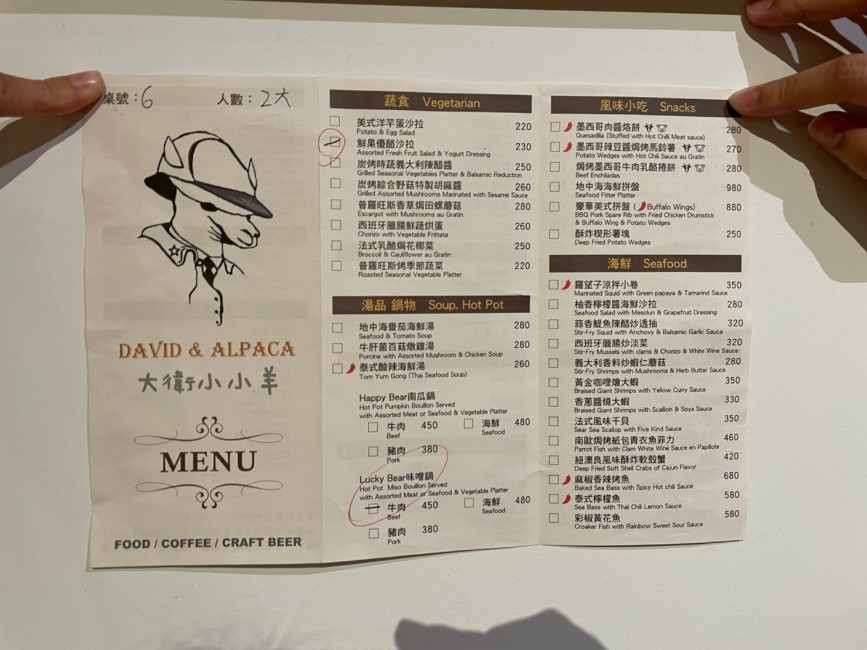 桌號：6
人數：2大
DAVID & ALPACA
大衛小小羊
MENU
FOOD / COFFEE / CRAFT BEER
蔬食 Vegetarian
美式洋芋蛋沙拉 220
Potato & Egg Salad
鮮果優酪沙拉 230
Assorted Fresh Fruit Salad & Yogurt Dressing
炭烤時蔬義大利陳醋醬 250
Grilled Seasonal Vegetables Platter & Balsamic Reduction
炭烤綜合野菇特製胡麻醬 260
Grilled Assorted Mushrooms Marinated with Sesame Sauce
普羅旺斯香草焗田螺蘑菇 280
Escargot with Mushrooms au Gratin
西班牙臘腸鮮蔬烘蛋 260
Chorizo with Vegetable Frittata
法式乳酪焗花椰菜 250
Broccoli & Cauliflower au Gratin
普羅旺斯烤季節蔬菜 220
Roasted Seasonal Vegetable Platter
湯品 鍋物 Soup. Hot Pot
地中海番茄海鮮湯 280
Seafood & Tomato Soup
牛肝菌百菇燉雞湯 280
Porcine with Assorted Mushroom & Chicken Soup
泰式酸辣海鮮湯 260
Tom Yum Gong (Thai Seafood Soup)
Happy Bear南瓜鍋
Hot Pot Pumpkin Bouillon Served
with Assorted Meat or Seafood & Vegetable Platter
牛肉 450 海鮮 480
Beef Seafood
豬肉 380
Pork
Lucky Bear味噌鍋
Hot Pot Miso Bouillon Served
with Assorted Meat or Seafood & Vegetable Platter
牛肉 450 海鮮 480
Beef Seafood
豬肉 380
Pork
風味小吃 Snacks
墨西哥肉醬烙餅 280
Quesadilla (Stuffed with Hot Chili Meat sauce)
墨西哥辣豆醬焗烤馬鈴薯 270
Potato Wedges with Hot Chili Sauce au Gratin
焗烤墨西哥牛肉乳酪捲餅 280
Beef Enchiladas
地中海海鮮拼盤 980
Seafood Fitter Platter
豪華美式拼盤 (Buffalo Wings) 880
BBQ Pork Spare Rib with Fried Chicken Drumstick
& Buffalo Wing & Potato Wedges
酥炸楔形薯塊 250
Deep Fried Potato Wedges
海鮮 Seafood
羅望子涼拌小卷 350
Marinated Squid with Green papaya & Tamarind Sauce
柚香檸檬醬海鮮沙拉 280
Seafood Salad with Mesclun & Grapefruit Dressing
蒜香鯷魚陳醋炒透抽 320
Stir-Fry Squid with Anchovy & Balsamic Garlic Sauce
西班牙臘腸炒淡菜 320
Stir-Fry Mussels with clams & Chorizo & White Wine Sauce
義大利香料炒蝦仁蘑菇 280
Stir-Fry Shrimps with Mushrooms & Herb Butter Sauce
黃金咖哩燴大蝦 350
Braised Giant Shrimps with Yellow Curry Sauce
香蔥醬燒大蝦 330
Braised Giant Shrimps with Scallion & Soya Sauce
法式風味干貝 350
Sear Sea Scallop with Five Kind Sauce
南歐焗烤紙包青衣魚菲力 460
Parrot Fish with Clam White Wine Sauce en Papilote
紐澳良風味酥炸軟殼蟹 420
Deep Fried Soft Shell Crabs of Cajun Flavor
麻椒香辣烤魚 680
Baked Sea Bass with Spicy Hot chili Sauce
泰式檸檬魚 580
Sea Bass with Thai Chili Lemon Sauce
彩椒黃花魚 580
Croaker Fish with Rainbow Sweet Sour Sauce